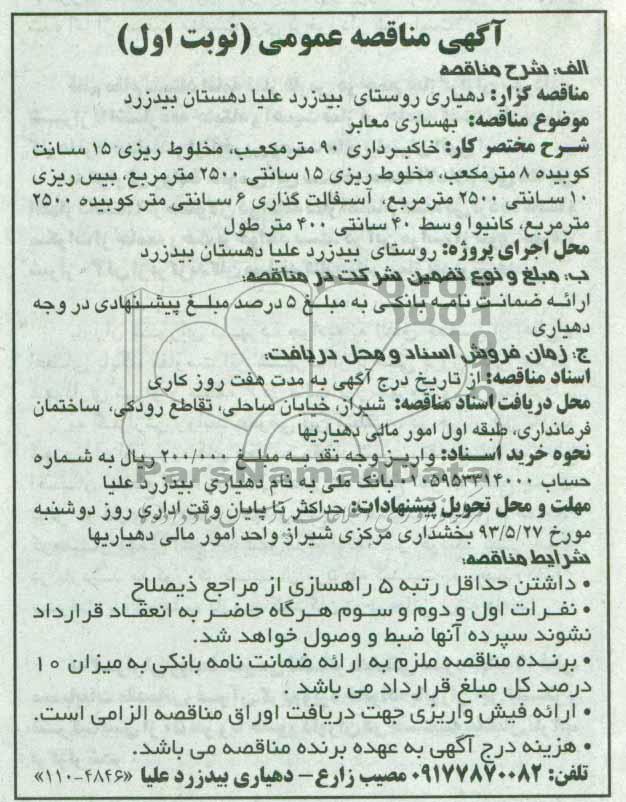 آگهی مناقصه عمومی (نوبت اول)
الف: شرح مناقصه
مناقصه گزار: دهیاری روستای بیدزرد علیا دهستان بیدزرد
موضوع مناقصه: بهسازی معابر
شرح مختصر کار: خاکبرداری ۹۰ مترمکعب، مخلوط ریزی ۱۵ سانت
کوبیده ۸ مترمکعب، مخلوط ریزی ۱۵ سانتی ۲۵۰۰ مترمربع، بیس ریزی
۱۰ سانتی ۲۵۰۰ مترمربع، آسفالت گذاری ۶ سانتی متر کوبیده ۲۵۰۰
مترمربع، کانیوا وسط ۴۰ سانتی ۴۰۰ متر طول
محل اجرای پروژه: روستای بیدزرد علیا دهستان بیدزرد
ب: مبلغ و نوع تضمین شرکت در مناقصه:
ارائه ضمانت نامه بانکی به مبلغ ۵ درصد مبلغ پیشنهادی در وجه
دهیاری
ج: زمان فروش اسناد و محل دریافت:
اسناد مناقصه: از تاریخ درج آگهی به مدت هفت روز کاری
محل دریافت اسناد مناقصه: شیراز، خیابان ساحلی، تقاطع رودکی، ساختمان
فرمانداری، طبقه اول امور مالی دهیاریها
نحوه خرید اسناد: واریز وجه نقد به مبلغ ۲۰۰/۰۰۰ ریال به شماره
حساب ۰۱۰۵۹۵۳۳۱۴۰۰۰ بانک ملی به نام دهیاری بیدزرد علیا
مهلت و محل تحویل پیشنهادات: حداکثر تا پایان وقت اداری روز دوشنبه
مورخ ۹۳/۵/۲۷ بخشداری مرکزی شیراز واحد امور مالی دهیاریها
شرایط مناقصه:
• داشتن حداقل رتبه ۵ راهسازی از مراجع ذیصلاح
• نفرات اول و دوم و سوم هرگاه حاضر به انعقاد قرارداد
نشوند سپرده آنها ضبط و وصول خواهد شد.
• برنده مناقصه ملزم به ارائه ضمانت نامه بانکی به میزان ۱۰
درصد کل مبلغ قرارداد می باشد .
• ارائه فیش واریزی جهت دریافت اوراق مناقصه الزامی است.
• هزینه درج آگهی به عهده برنده مناقصه می باشد.
تلفن: ۰۹۱۷۷۸۷۰۰۸۲ مصیب زارع - دهیاری بیدزرد علیا «۴۸۴۶-۱۱۰»
ParsNamadData